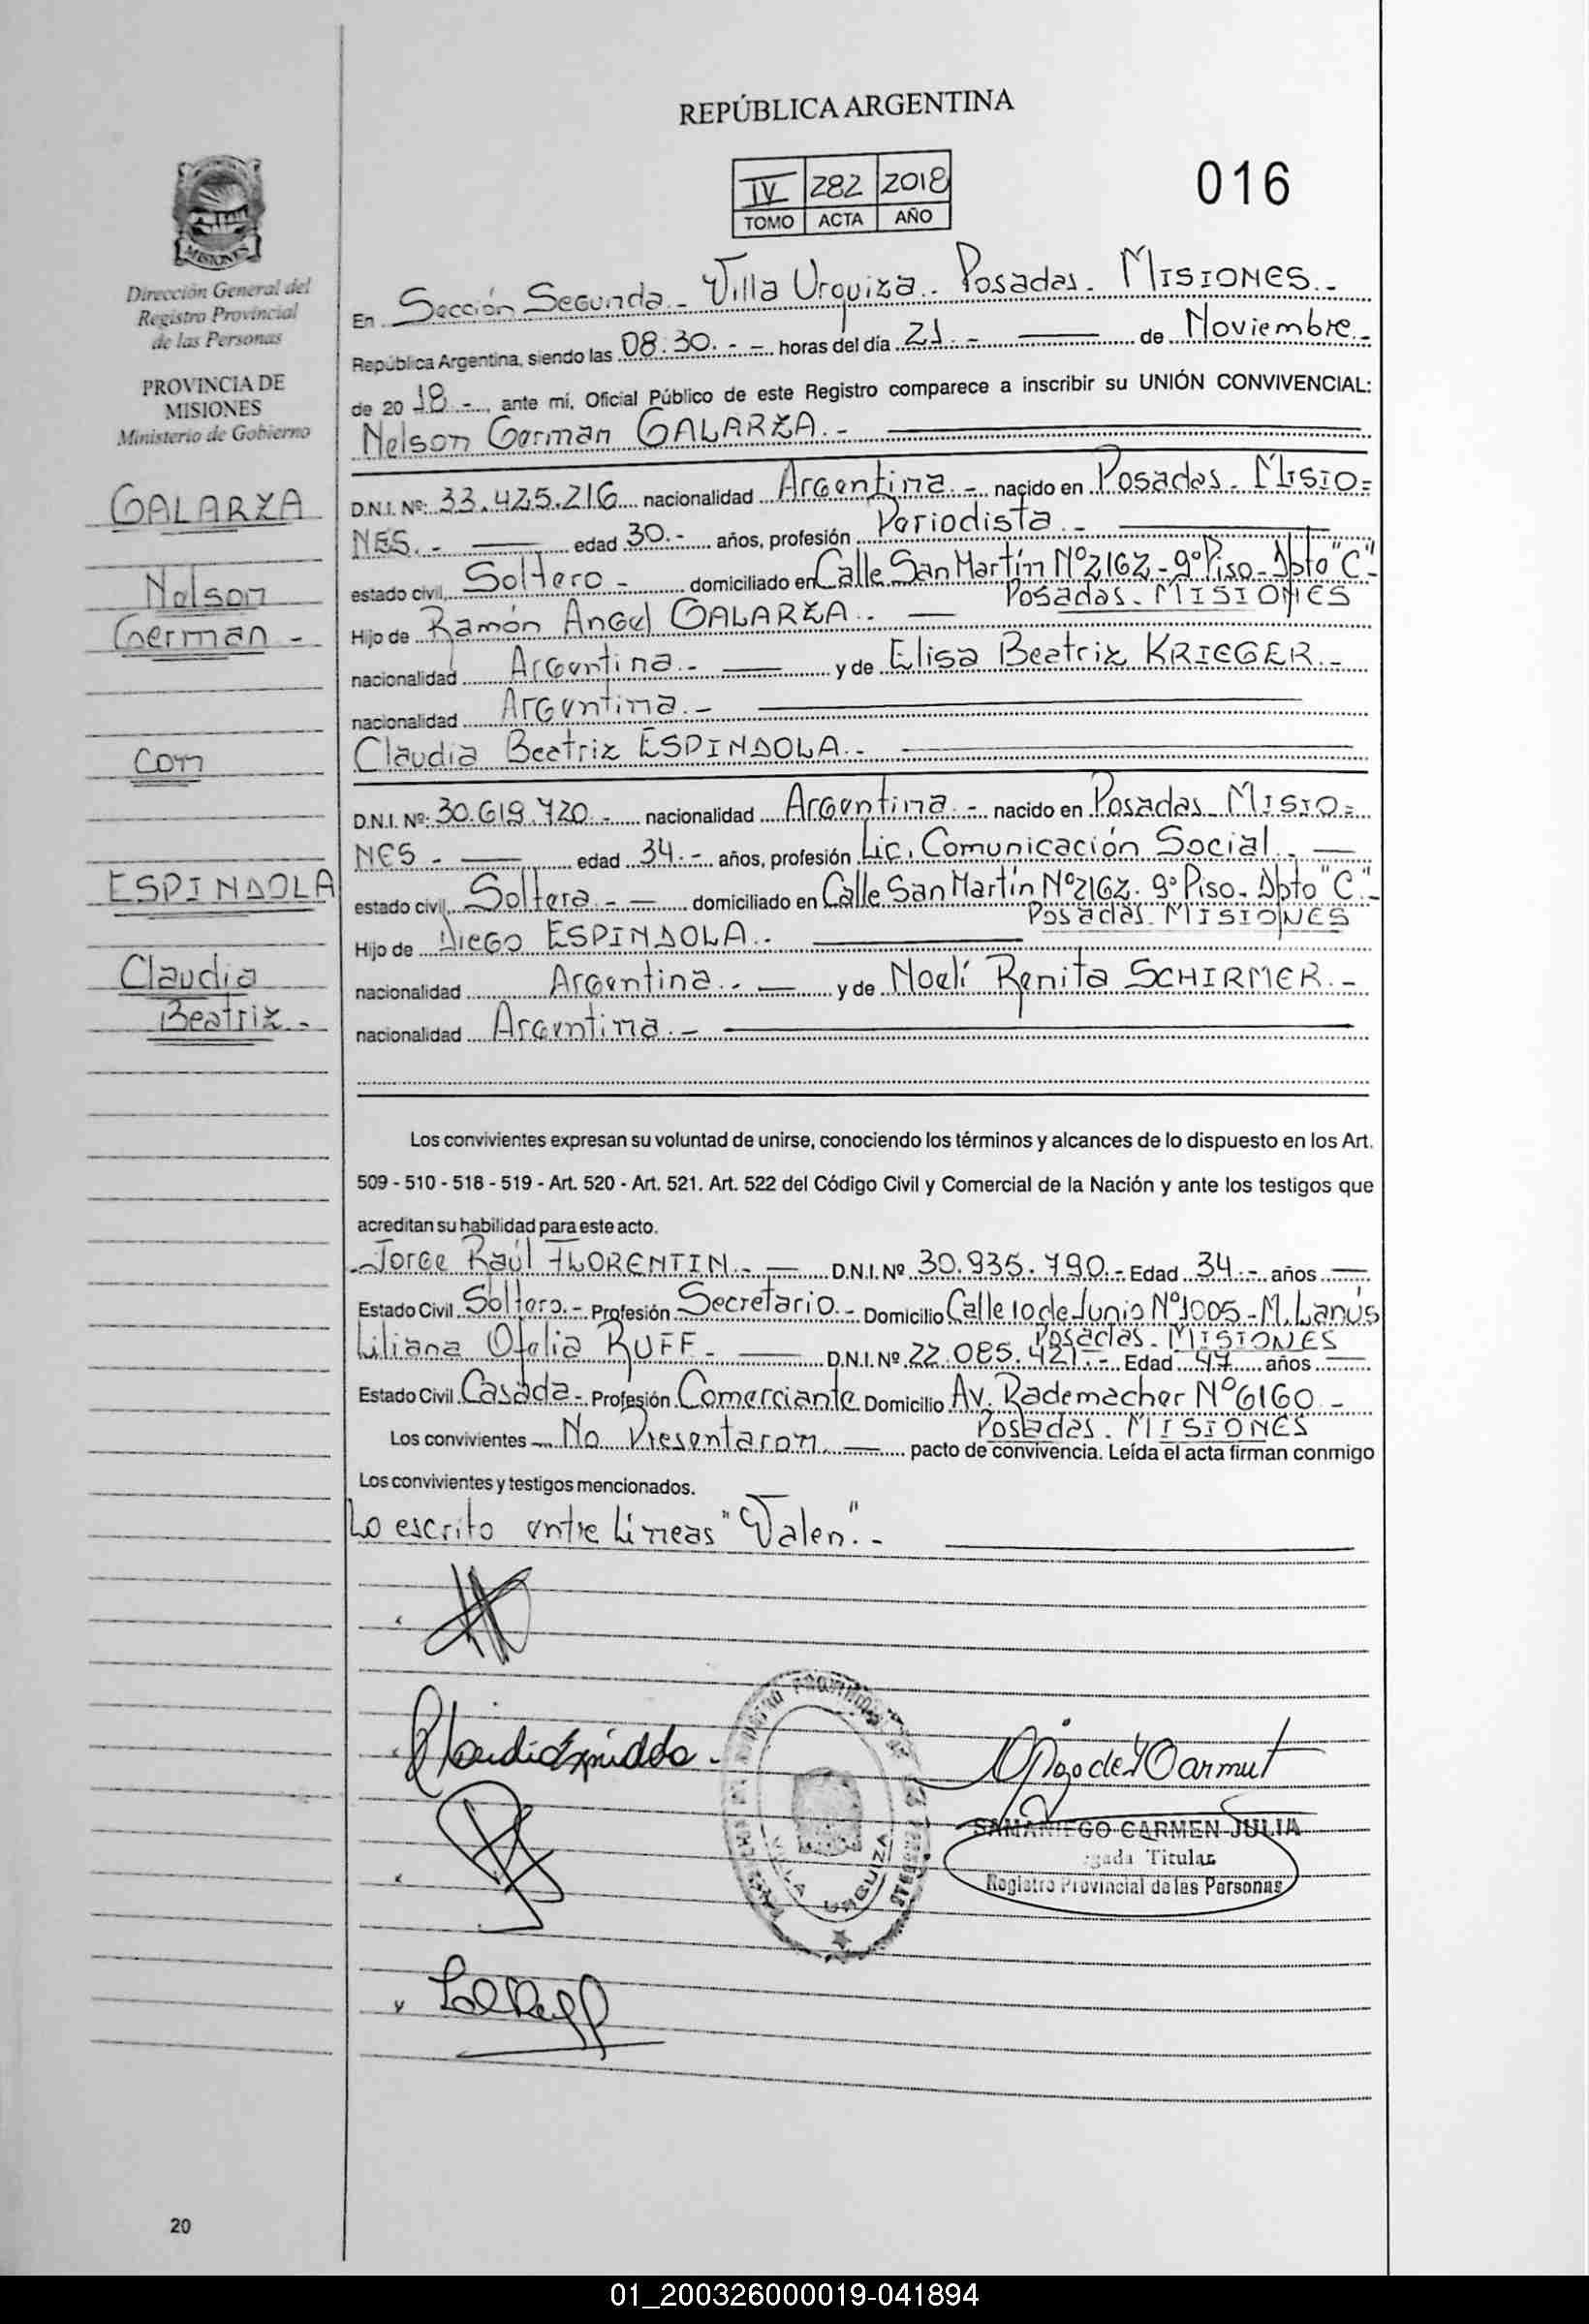 REPÚBLICA ARGENTINA
IV 282 2018
TOMO ACTA AÑO
016
MISIONES
Dirección General del
Registro Provincial
de las Personas
PROVINCIA DE
MISIONES
Ministerio de Gobierno
GALARZA
Nelson
German -
con
ESPINDOLA
Claudia
Beatriz.-
En Sección Segunda.- Villa Urquiza.- Posadas.- MISIONES.-
República Argentina, siendo las 08:30.- - horas del día 21.- de Noviembre.-
de 20 18.-, ante mí, Oficial Público de este Registro comparece a inscribir su UNIÓN CONVIVENCIAL:
Nelson German GALARZA.-
D.N.I. Nº: 33.425.216 nacionalidad Argentina.- nacido en Posadas.- MISIO=
NES.- edad 30.- años, profesión Periodista.-
estado civil, Soltero- domiciliado en Calle San Martín Nº2162-9º Piso-Dpto "C"-
Posadas-MISIONES
Hijo de Ramón Angel GALARZA.-
nacionalidad Argentina.- y de Elisa Beatriz KRIEGER.-
nacionalidad Argentina.-
Claudia Beatriz ESPINDOLA.-
D.N.I. Nº: 30.619.720.- nacionalidad Argentina.- nacido en Posadas-MISIO=
NES- edad 34.- años, profesión Lic. Comunicación Social.-
estado civil, Soltera.- domiciliado en Calle San Martin Nº2162.-9º Piso.-Dpto "C"-
Posadas-MISIONES
Hijo de Diego ESPINDOLA.-
nacionalidad Argentina.- y de Noelí Renita SCHIRMER.-
nacionalidad Argentina.-
Los convivientes expresan su voluntad de unirse, conociendo los términos y alcances de lo dispuesto en los Art.
509 - 510 - 518 - 519 - Art. 520 - Art. 521. Art. 522 del Código Civil y Comercial de la Nación y ante los testigos que
acreditan su habilidad para este acto.
Jorge Raúl FLORENTIN.- D.N.I. Nº 30.935.790.- Edad 34.- años
Estado Civil Soltero.- Profesión Secretario.- Domicilio Calle 10 de Junio Nº1005-M. Lanús
Posadas-MISIONES
Liliana Ofelia RUFF- D.N.I. Nº 22.085.421.- Edad 47 años
Estado Civil Casada- Profesión Comerciante Domicilio Av. Rademacher Nº6160-
Posadas.MISIONES
Los convivientes No Presentaron pacto de convivencia. Leída el acta firman conmigo
Los convivientes y testigos mencionados.
Lo escrito entre Líneas "Valen".-
VILLA URQUIZA
SAMANIEGO CARMEN JULIA
Titular
Registro Provincial de las Personas
20
01_200326000019-041894